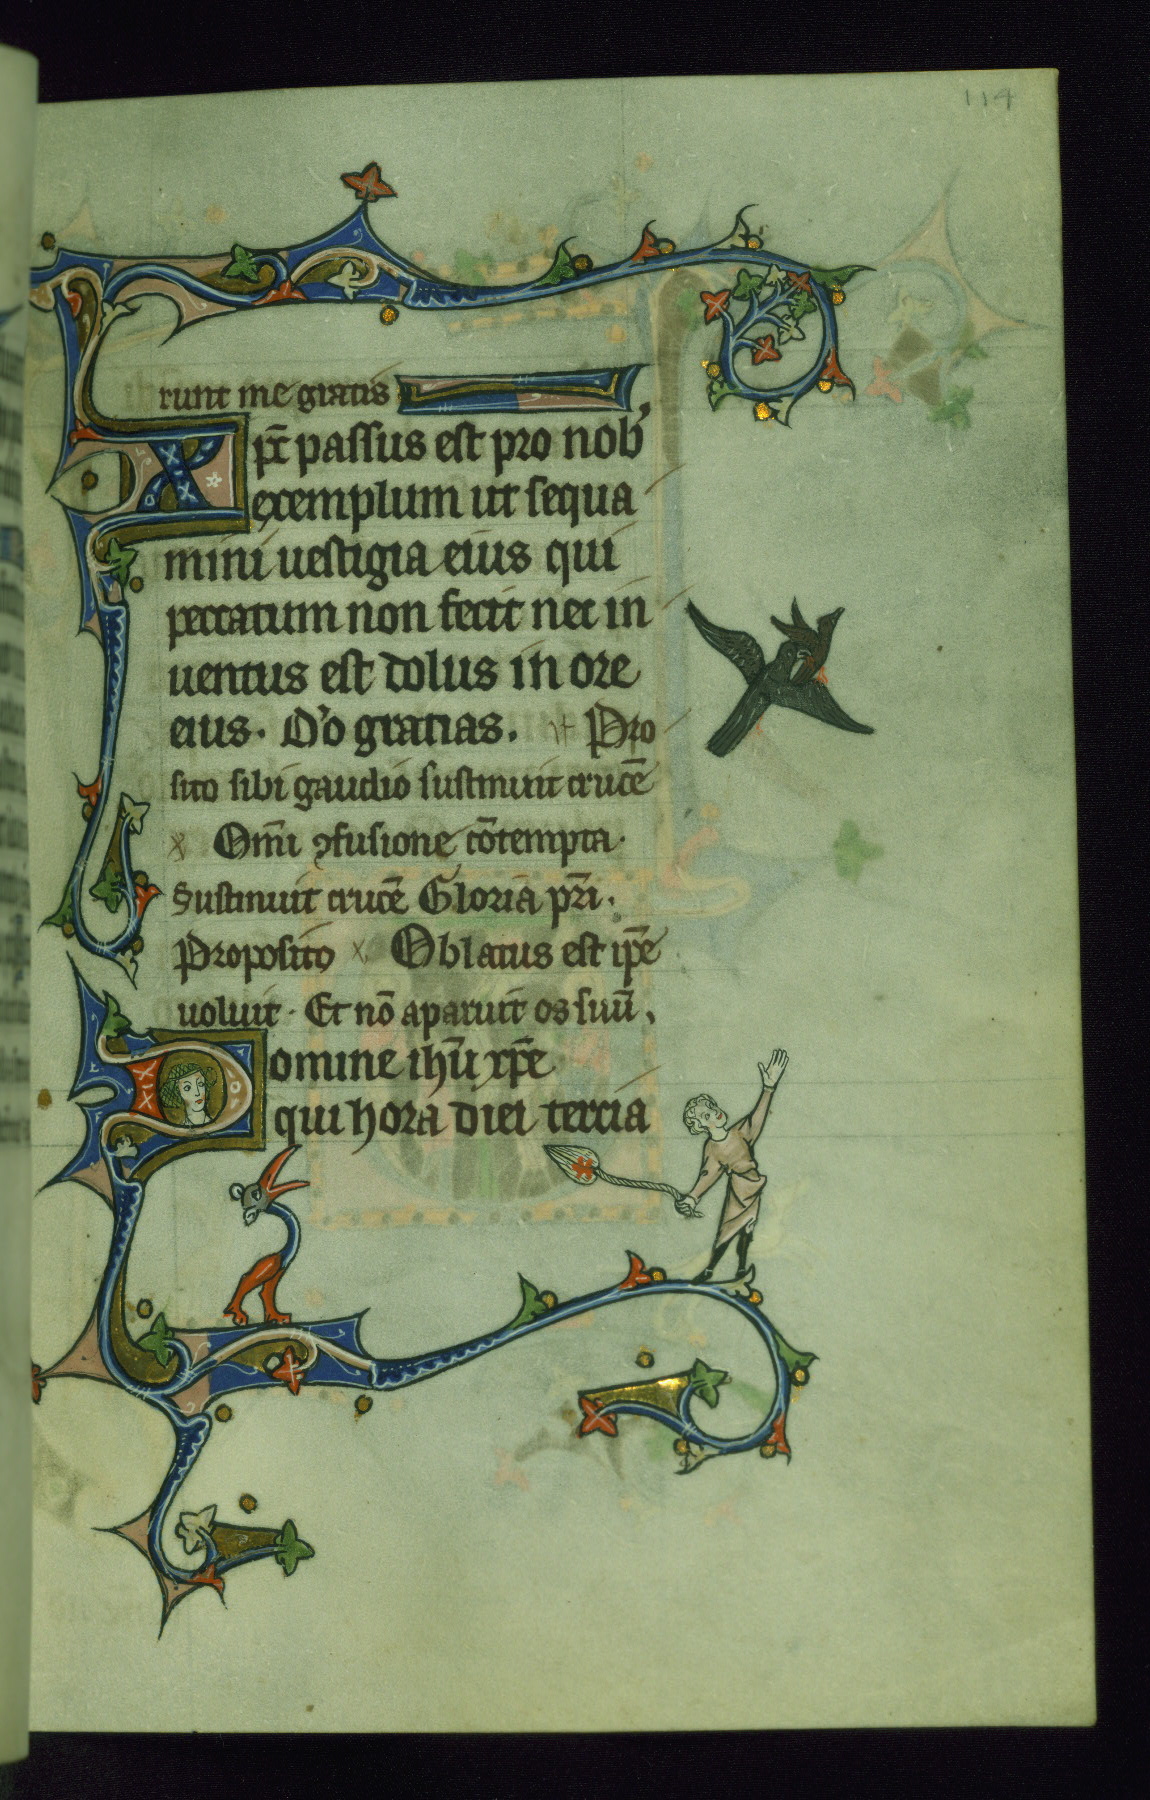 114
runt me gratis
Xp̄c passus est pro nob'
exemplum ut sequa
mini uestigia eius qui
peccatum non fecit nec in
uentus est dolus in ore
eius. Do̓ gratias. Pro
sito sibi gaudio sustinuit crucē
Om̄i ꝯfusione cōtempta.
Sustinuit crucē Gloria pr̄i.
Proposito Oblatus est ip̄e
uoluit. Et nō aparuit os suū.
Domine ihū xp̄e
qui hora diei tercia